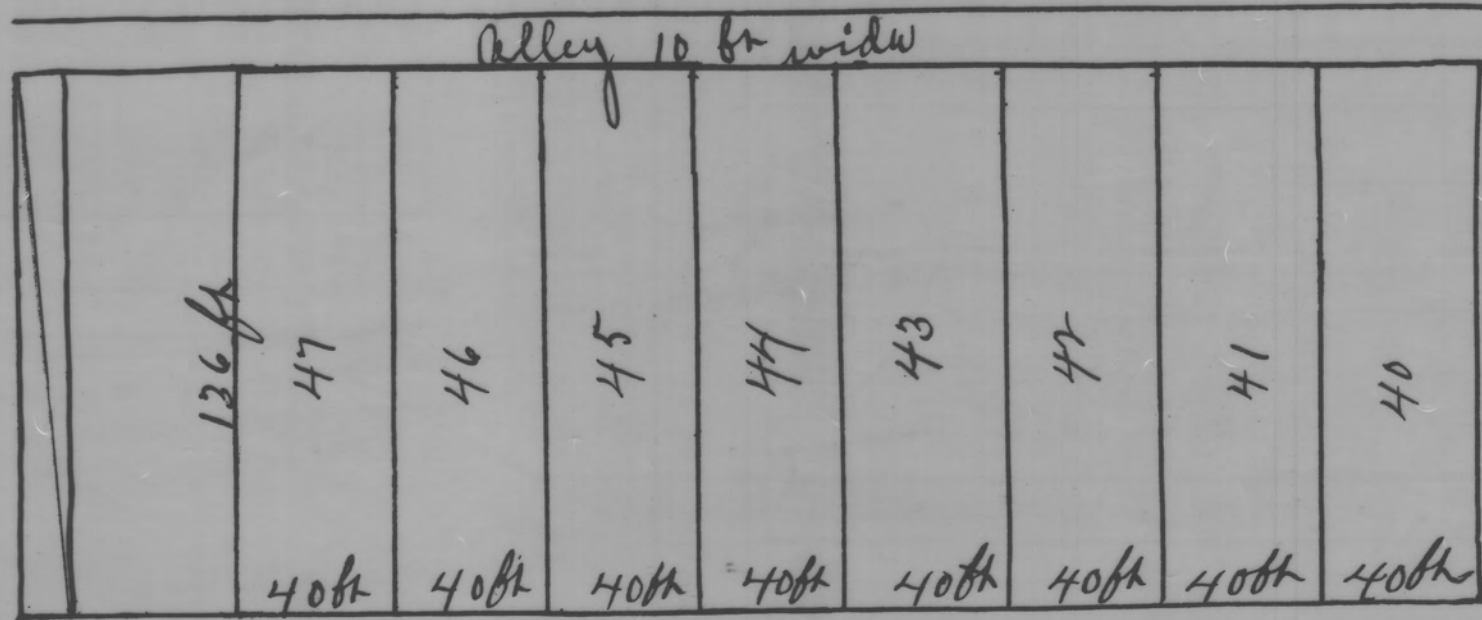 Alley 10 ft wide
136 ft
47
46
45
44
43
42
41
40
40ft
40ft
40ft
40ft
40ft
40ft
40ft
40ft